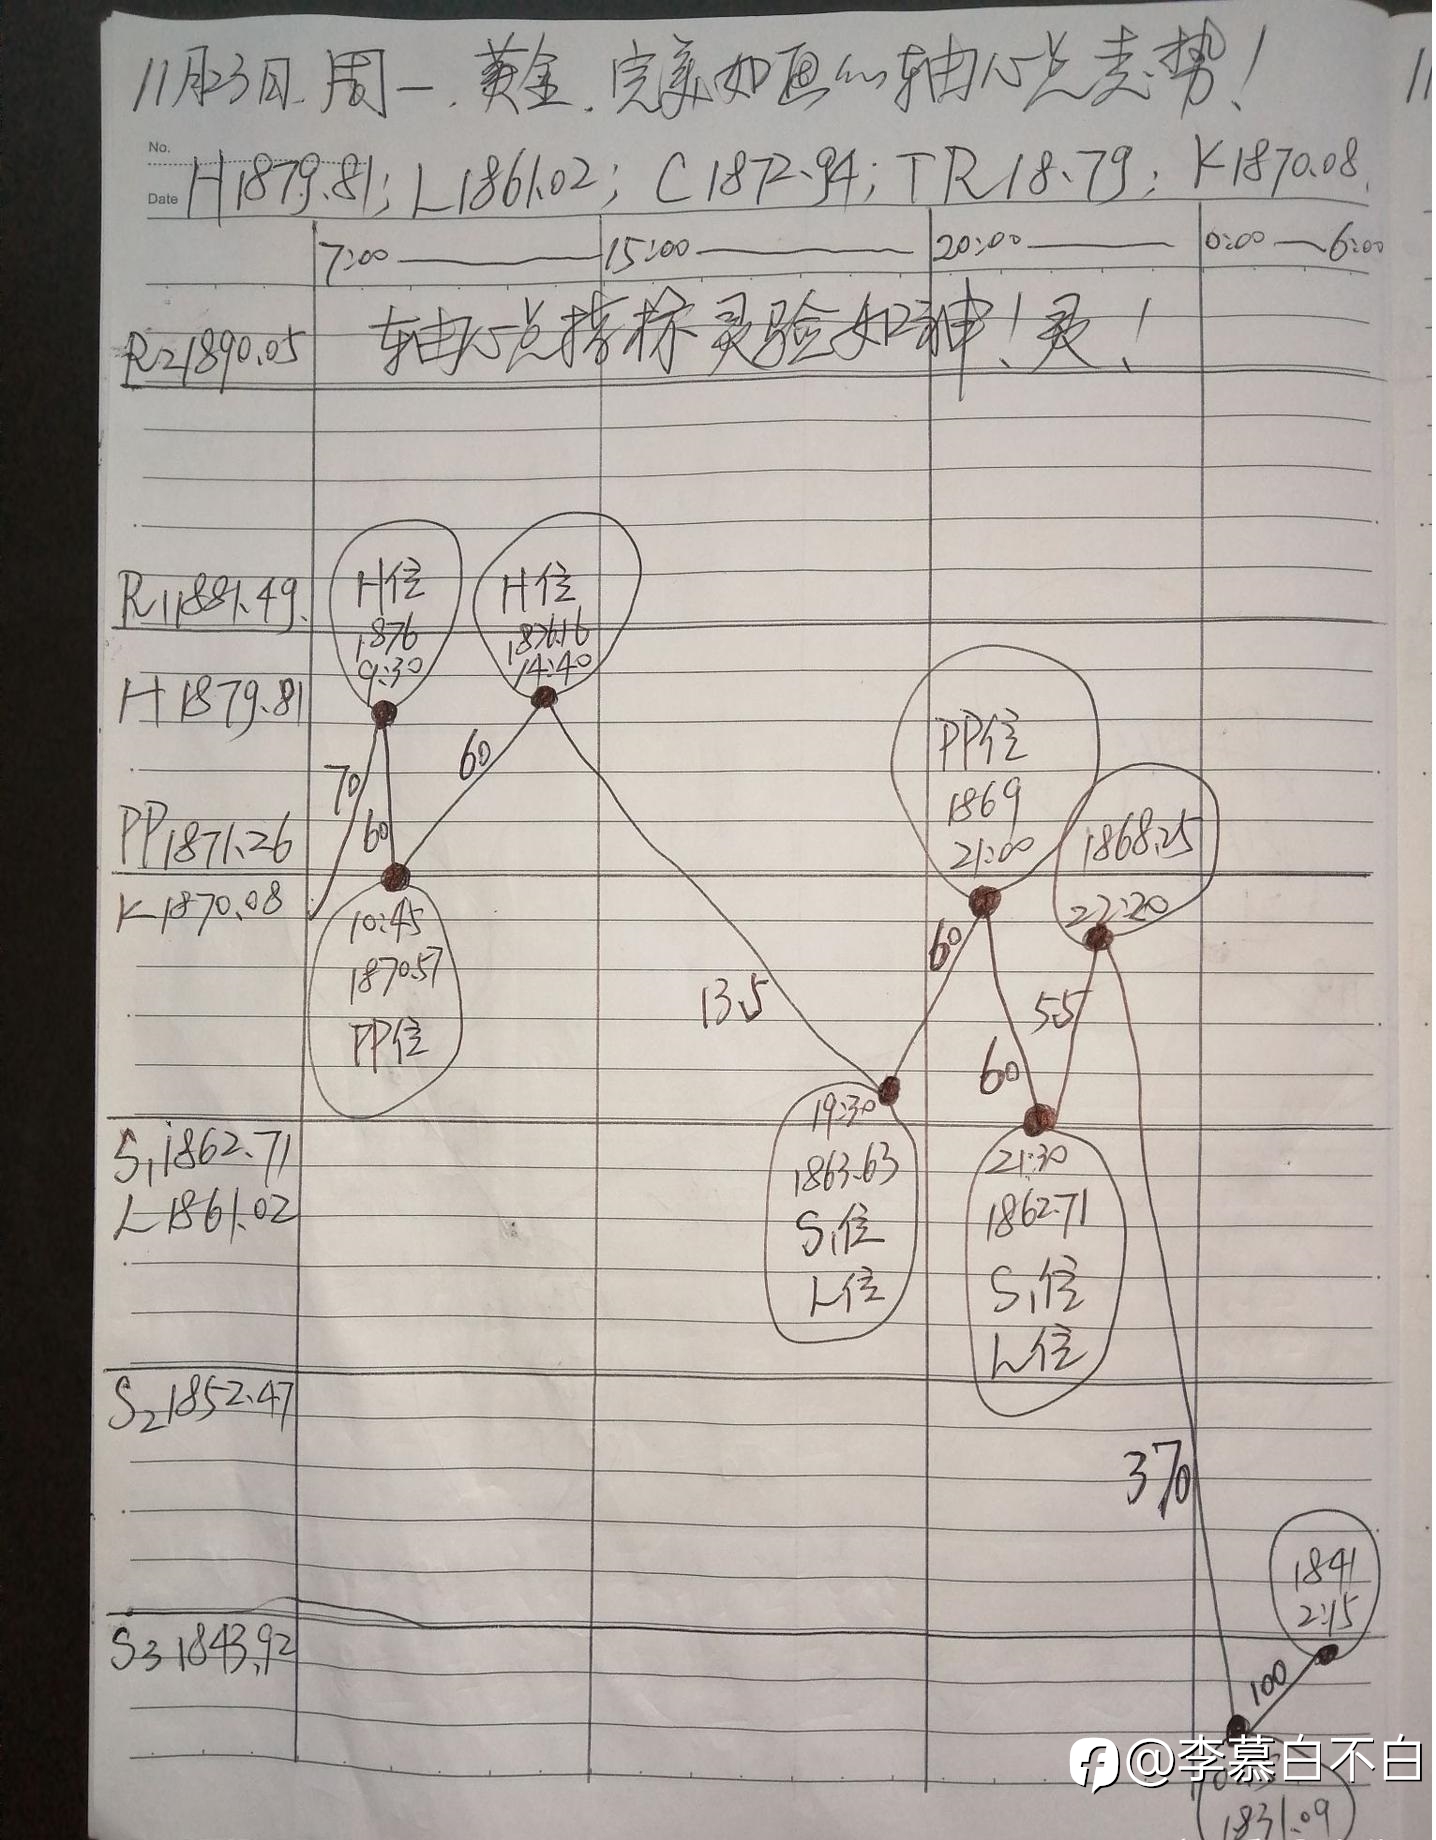 11月23日.周一.黄金.完美如画的轴心点走势！
No.
Date
H1879.81; L1861.02; C1872.94; TR18.79; K1870.08
7:00
15:00
20:00
0:00
6:00
R21890.05
轴心点指标灵验如神！灵！
R11881.49
H位
1876
9:30
H位
1876.16
14:40
H1879.81
70
60
60
PP位
1869
21:00
PP1871.26
1868.25
22:20
K1870.08
10:45
1870.57
PP位
135
60
55
60
S11862.71
L1861.02
19:30
1863.63
S1位
L位
21:30
1862.71
S1位
L位
S21852.47
370
1841
2:15
S31843.92
100
@李慕白不白
1831.09